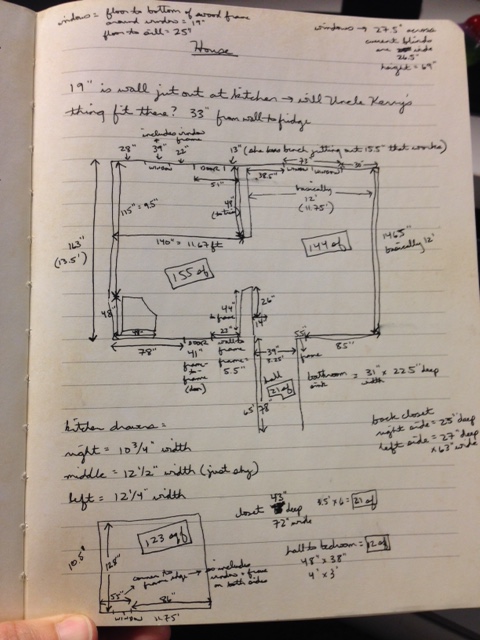 windows = floor to bottom of wood frame
around window = 19"
floor to sill = 25"
windows → 27.5" across
current blinds
are wide
26.5"
height = 69"
House
19" is wall jut out at kitchen → will Uncle Kerry's
thing fit there? 33" from wall to fridge
includes window
+ frame
28" 39" 22"
13" (she has bench jutting out 15.5" that works)
WINDOW
DOOR
51"
38.5"
73"
WINDOW WINDOW
basically
12'
(11.75')
115" = 9.5'
48"
163"
(13.5')
140" = 11.67 ft
144 sf
146.5"
basically 12'
155 sf
48"
44"
to frame
26"
14"
78"
DOOR
41"
from
to
frame
(door)
22"
wall to
frame
frame =
5.5"
39"
3.25'
hall
21 sf
65" 78"
5.5"
frame
85"
bathroom = 31" x 22.5" deep
sink width
kitchen drawers =
right = 10 3/4" width
middle = 12 1/2" width (just shy)
left = 12 1/4" width
back closet
right side = 25" deep
left side = 27" deep
x 63" wide
closet 43" deep
72" wide
3.5' x 6 = 21 sf
hall to bedroom = 12 sf
48" x 38"
4' x 3'
123 sf
10.5'
128"
corner to
frame edge → includes
window + frame
on both sides
55"
86"
window 11.75'